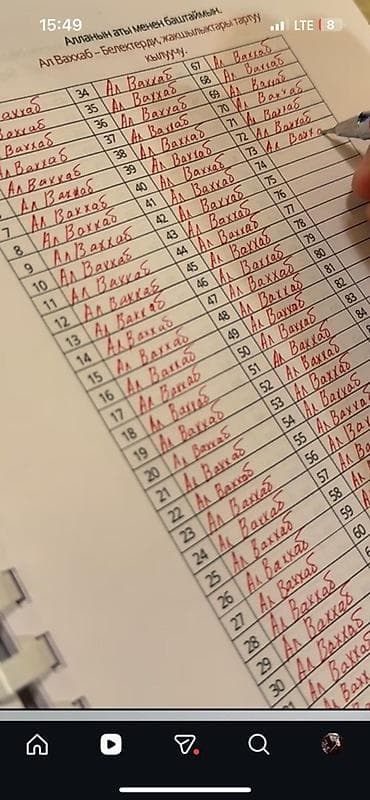 15:49
LTE 8
Алланын аты менен баштаймын.
Ал Ваххаб – Белектерди, жакшылыктары тартуу
кылуучу.
Ваххаб
Ал Ваххаб
Ал Ваххаб
Ал Ваххаб
7 Ал Ваххаб
8 Ал Ваххаб
9 Ал Ваххаб
10 Ал Ваххаб
11 Ал Ваххаб
12 Ал Ваххаб
13 Ал Ваххаб
14 Ал Ваххаб
15 Ал Ваххаб
16 Ал Ваххаб
17 Ал Ваххаб
18 Ал Ваххаб
19 Ал Ваххаб
20 Ал Ваххаб
21 Ал Ваххаб
22 Ал Ваххаб
23 Ал Ваххаб
24 Ал Ваххаб
25 Ал Ваххаб
26 Ал Ваххаб
27 Ал Ваххаб
28 Ал Ваххаб
29 Ал Ваххаб
30 Ал Ваххаб
34 Ал Ваххаб
35 Ал Ваххаб
36 Ал Ваххаб
37 Ал Ваххаб
38 Ал Ваххаб
39 Ал Ваххаб
40 Ал Ваххаб
41 Ал Ваххаб
42 Ал Ваххаб
43 Ал Ваххаб
44 Ал Ваххаб
45 Ал Ваххаб
46 Ал Ваххаб
47 Ал Ваххаб
48 Ал Ваххаб
49 Ал Ваххаб
50 Ал Ваххаб
51 Ал Ваххаб
52 Ал Ваххаб
53 Ал Ваххаб
54 Ал Ваххаб
55 Ал Ваххаб
56 Ал
57 Ал
58 Ал
59
60
67 Ал Ваххаб
68 Ал Ваххаб
69 Ал Ваххаб
70 Ал Ваххаб
71 Ал Ваххаб
72 Ал Ваххаб
73 Ал Вахха
74
75
76
77
78
79
80
81
82
83
84